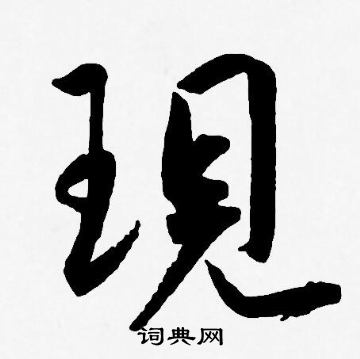 現
词典网